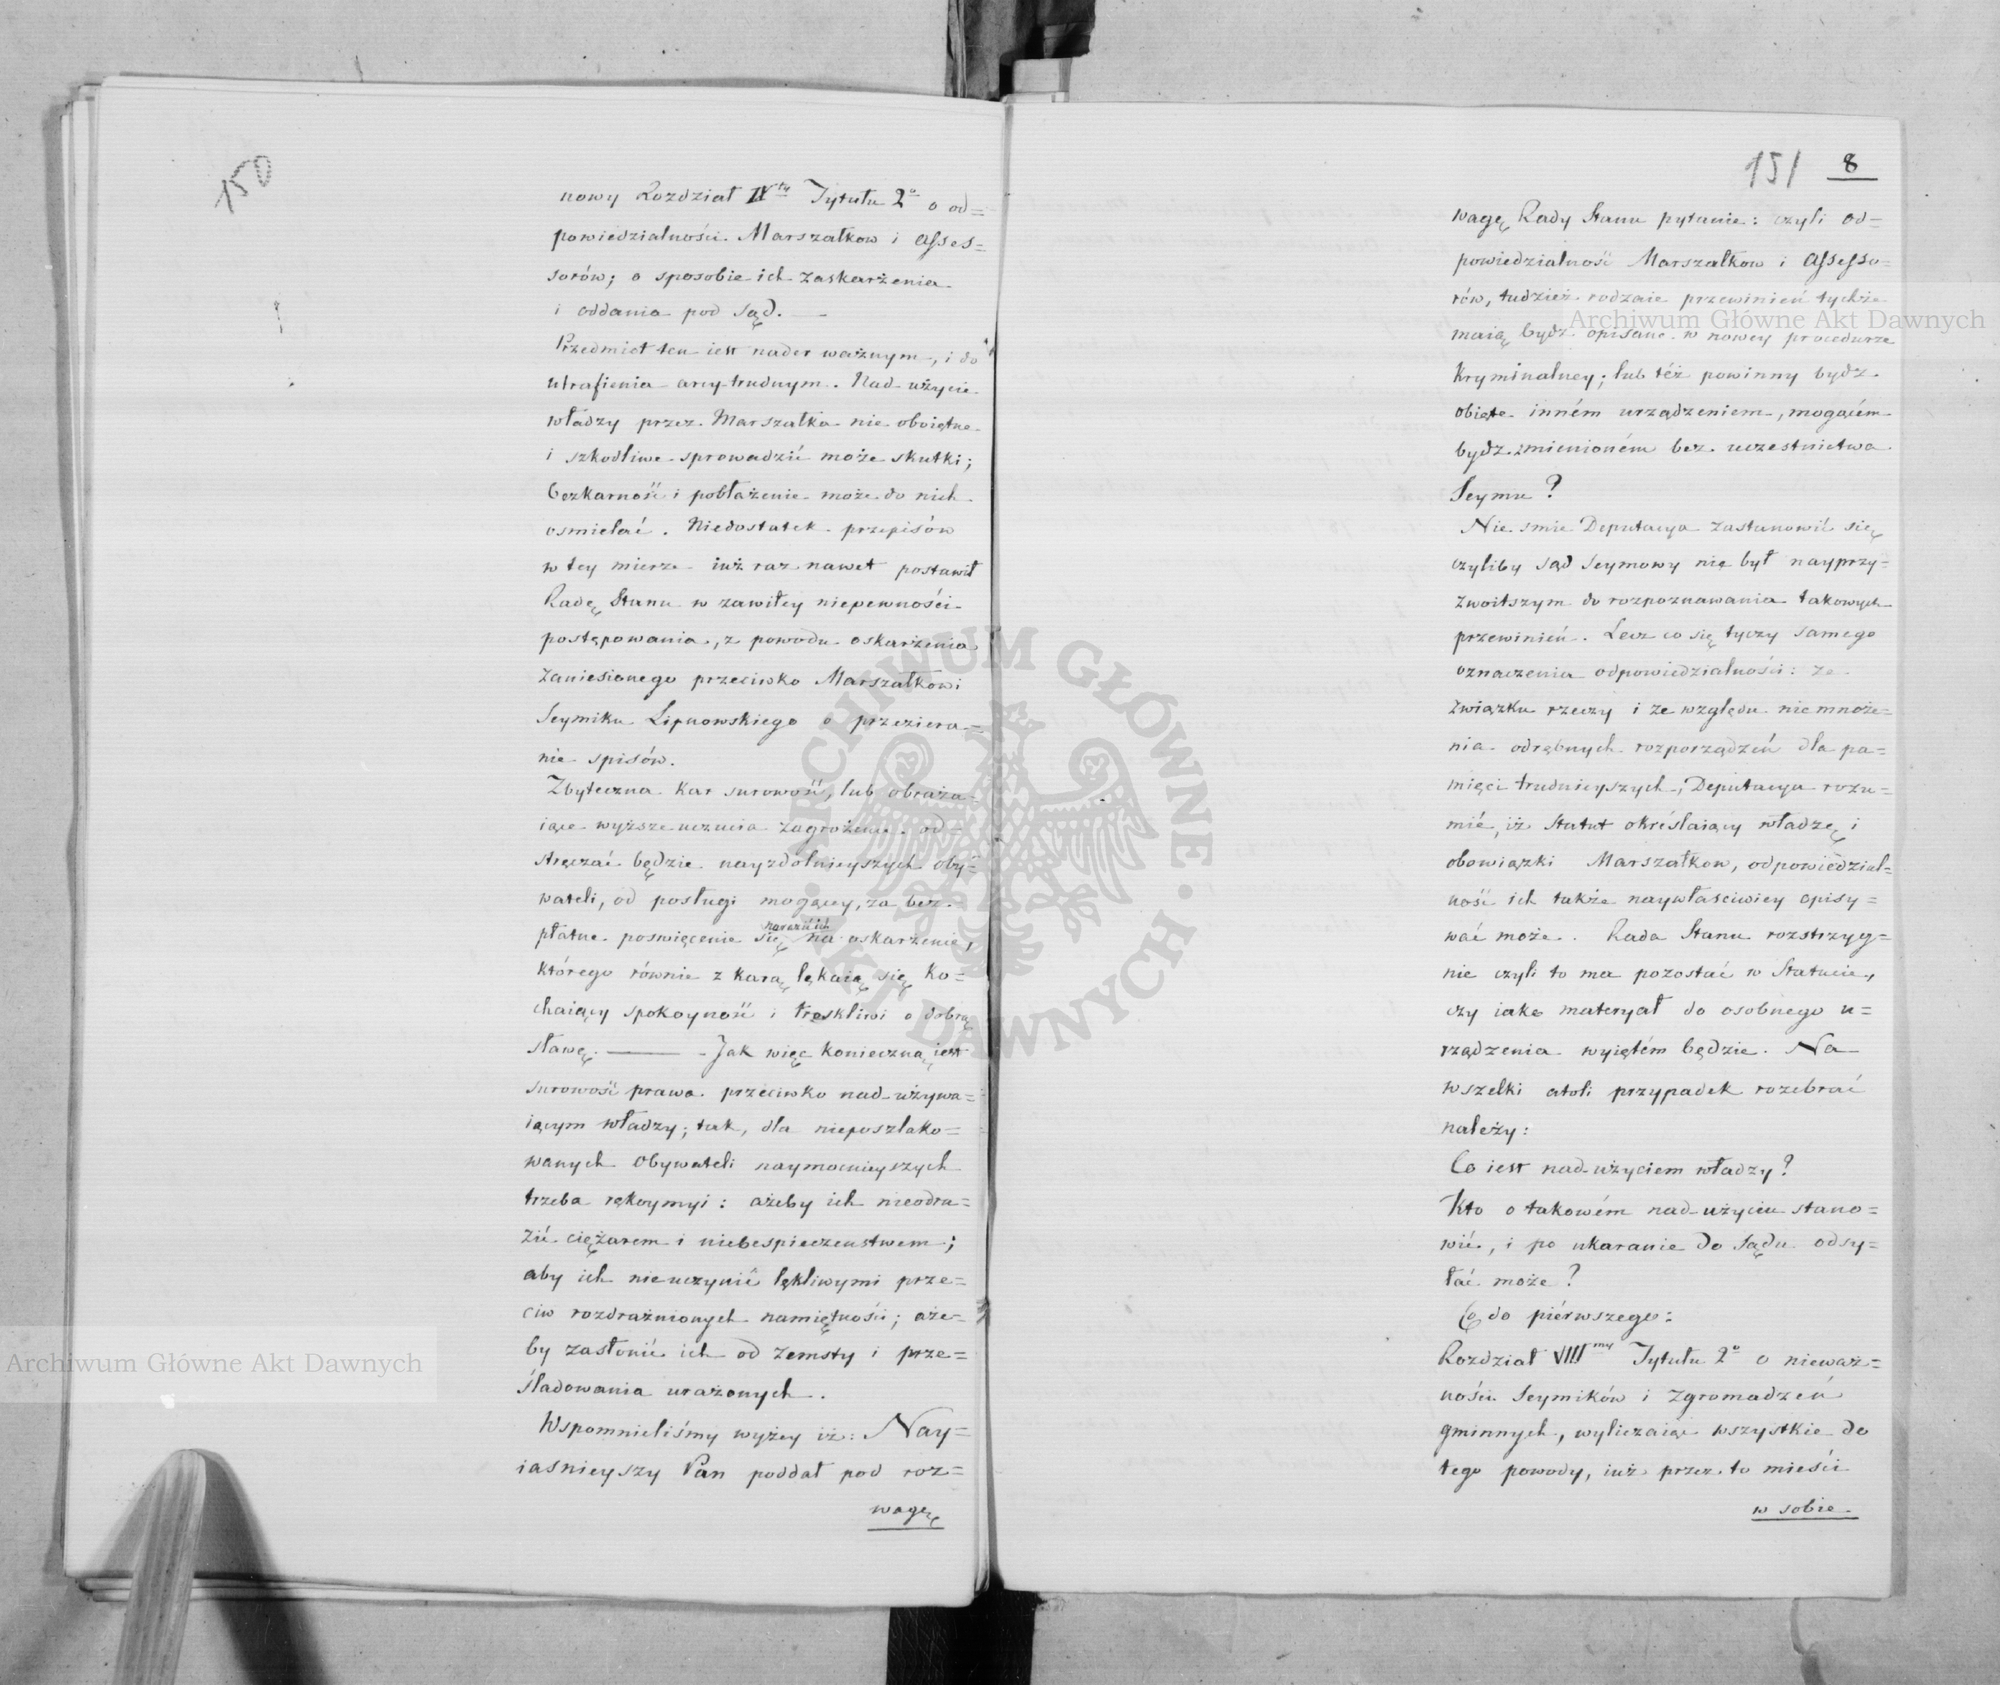 150
nowy Rozdział IX ty Tytułu 2º o od=
powiedzialności Marszałkow i Asses=
sorów; o sposobie ich zaskarżenia
i oddania pod Sąd. —
Przedmiot ten iest nader ważnym, i do
utrafienia arcy-trudnym. Nad-użycie
władzy przez Marszałka nie oboiętne
i szkodliwe sprowadzić może skutki;
bezkarność i pobłażenie może do nich
osmielać. Niedostatek przepisów
w tey mierze iuż raz nawet postawił
Radę Stanu w zawiłey niepewności
postępowania, z powodu oskarżenia
zaniesionego przeciwko Marszałkowi
Seymiku Lipnowskiego o przeziera=
nie spisów.
Zbyteczna kar surowość, lub obraża=
iące wyższe uczucia zagrożenie od=
stręczać będzie nayzdolnieyszych oby=
wateli, od posługi mogącey, za bez=
płatne poswięcenie się narazić ich na oskarżenie,
którego równie z karą lękaią się ko=
chaiący spokoyność i troskliwi o dobrą
sławę. — Jak więc konieczną iest
surowość prawa przeciwko nad-używa=
iącym władzy; tak, dla nieposzlako=
wanych Obywateli naymocnieyszych
trzeba rękoymyi: ażeby ich nieodra=
zić ciężarem i niebespieczeństwem;
aby ich nieuczynić lękliwymi prze=
ciw rozdrażnionych namiętności; aże=
by zasłonić ich od zemsty i prze=
śladowania urażonych.
Wspomnieliśmy wyżey iż: Nay=
iasnieyszy Pan poddał pod roz=
wagę
151 8
wagę Rady Stanu pytanie: czyli od=
powiedzialność Marszałkow i Assesso=
rów, tudzież rodzaie przewinień tychże
maią bydz opisane w nowey procedurze
Kryminalney; lub téż powinny bydz
obięte inném urządzeniem, mogącém
bydz zmienioném bez uczestnictwa
Seymu?
Nie smie Deputacya zastanowić się
czyliby sąd Seymowy nie był nayprzy=
zwoitszym do rozpoznawania takowych
przewinień. Lecz co się tyczy samego
oznaczenia odpowiedzialności: ze
związku rzeczy i ze względu niemnoże=
nia odrębnych rozporządzeń dla pa=
mięci trudnieyszych, Deputacya rozu=
mié, iż Statut określaiący władzę i
obowiązki Marszałkow, odpowiedzial=
ność ich także naywłaściwiey opisy=
wać może. Rada Stanu rozstrzyg=
nie czyli to ma pozostać w Statucie,
czy iako materyał do osobnego u=
rządzenia wyiętém będzie. Na
wszelki atoli przypadek rozebrać
należy:
Co iest nad-użyciem władzy?
Kto o takowém nad-użyciu stano=
wić, i po ukaranie do Sądu odsy=
łać może?
Co do piérwszego:
Rozdział VIII my Tytułu 2º o nieważ=
ności Seymików i Zgromadzeń
gminnych, wyliczaiąc wszystkie do
tego powody, iuż przez to mieści
w sobie
Archiwum Główne Akt Dawnych
Archiwum Główne Akt Dawnych
ARCHIWUM GŁÓWNE · AKT DAWNYCH ·